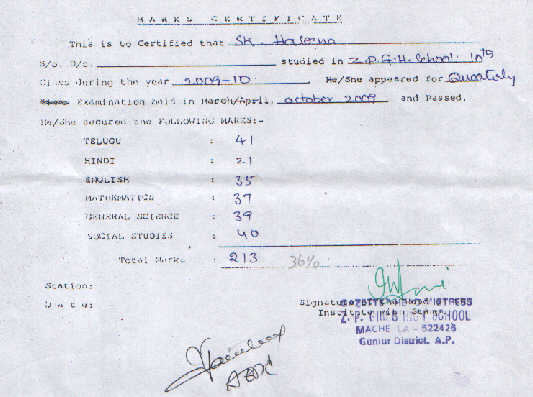 MARKS CERTIFICATE
This is to Certified that SK. Haleema
S/o. D/o. studied in Z.P.G.H. School 10th
Class during the year 2009-10 He/She appeared for Quartely
Examination held in March/April, october 2009 and Passed.
He/She secured the FOLLOWING MARKS:-
TELUGU : 41
HINDI : 21
ENGLISH : 35
MATHEMATICS : 37
GENERAL SCIENCE : 39
SOCIAL STUDIES : 40
Total Marks : 213 36%
Station:
Date:
Signature of the Head of
Institute
GAZETTED HEAD MISTRESS
Z. P. GIRLS HIGH SCHOOL
MACHERLA - 522426
Guntur District. A.P.